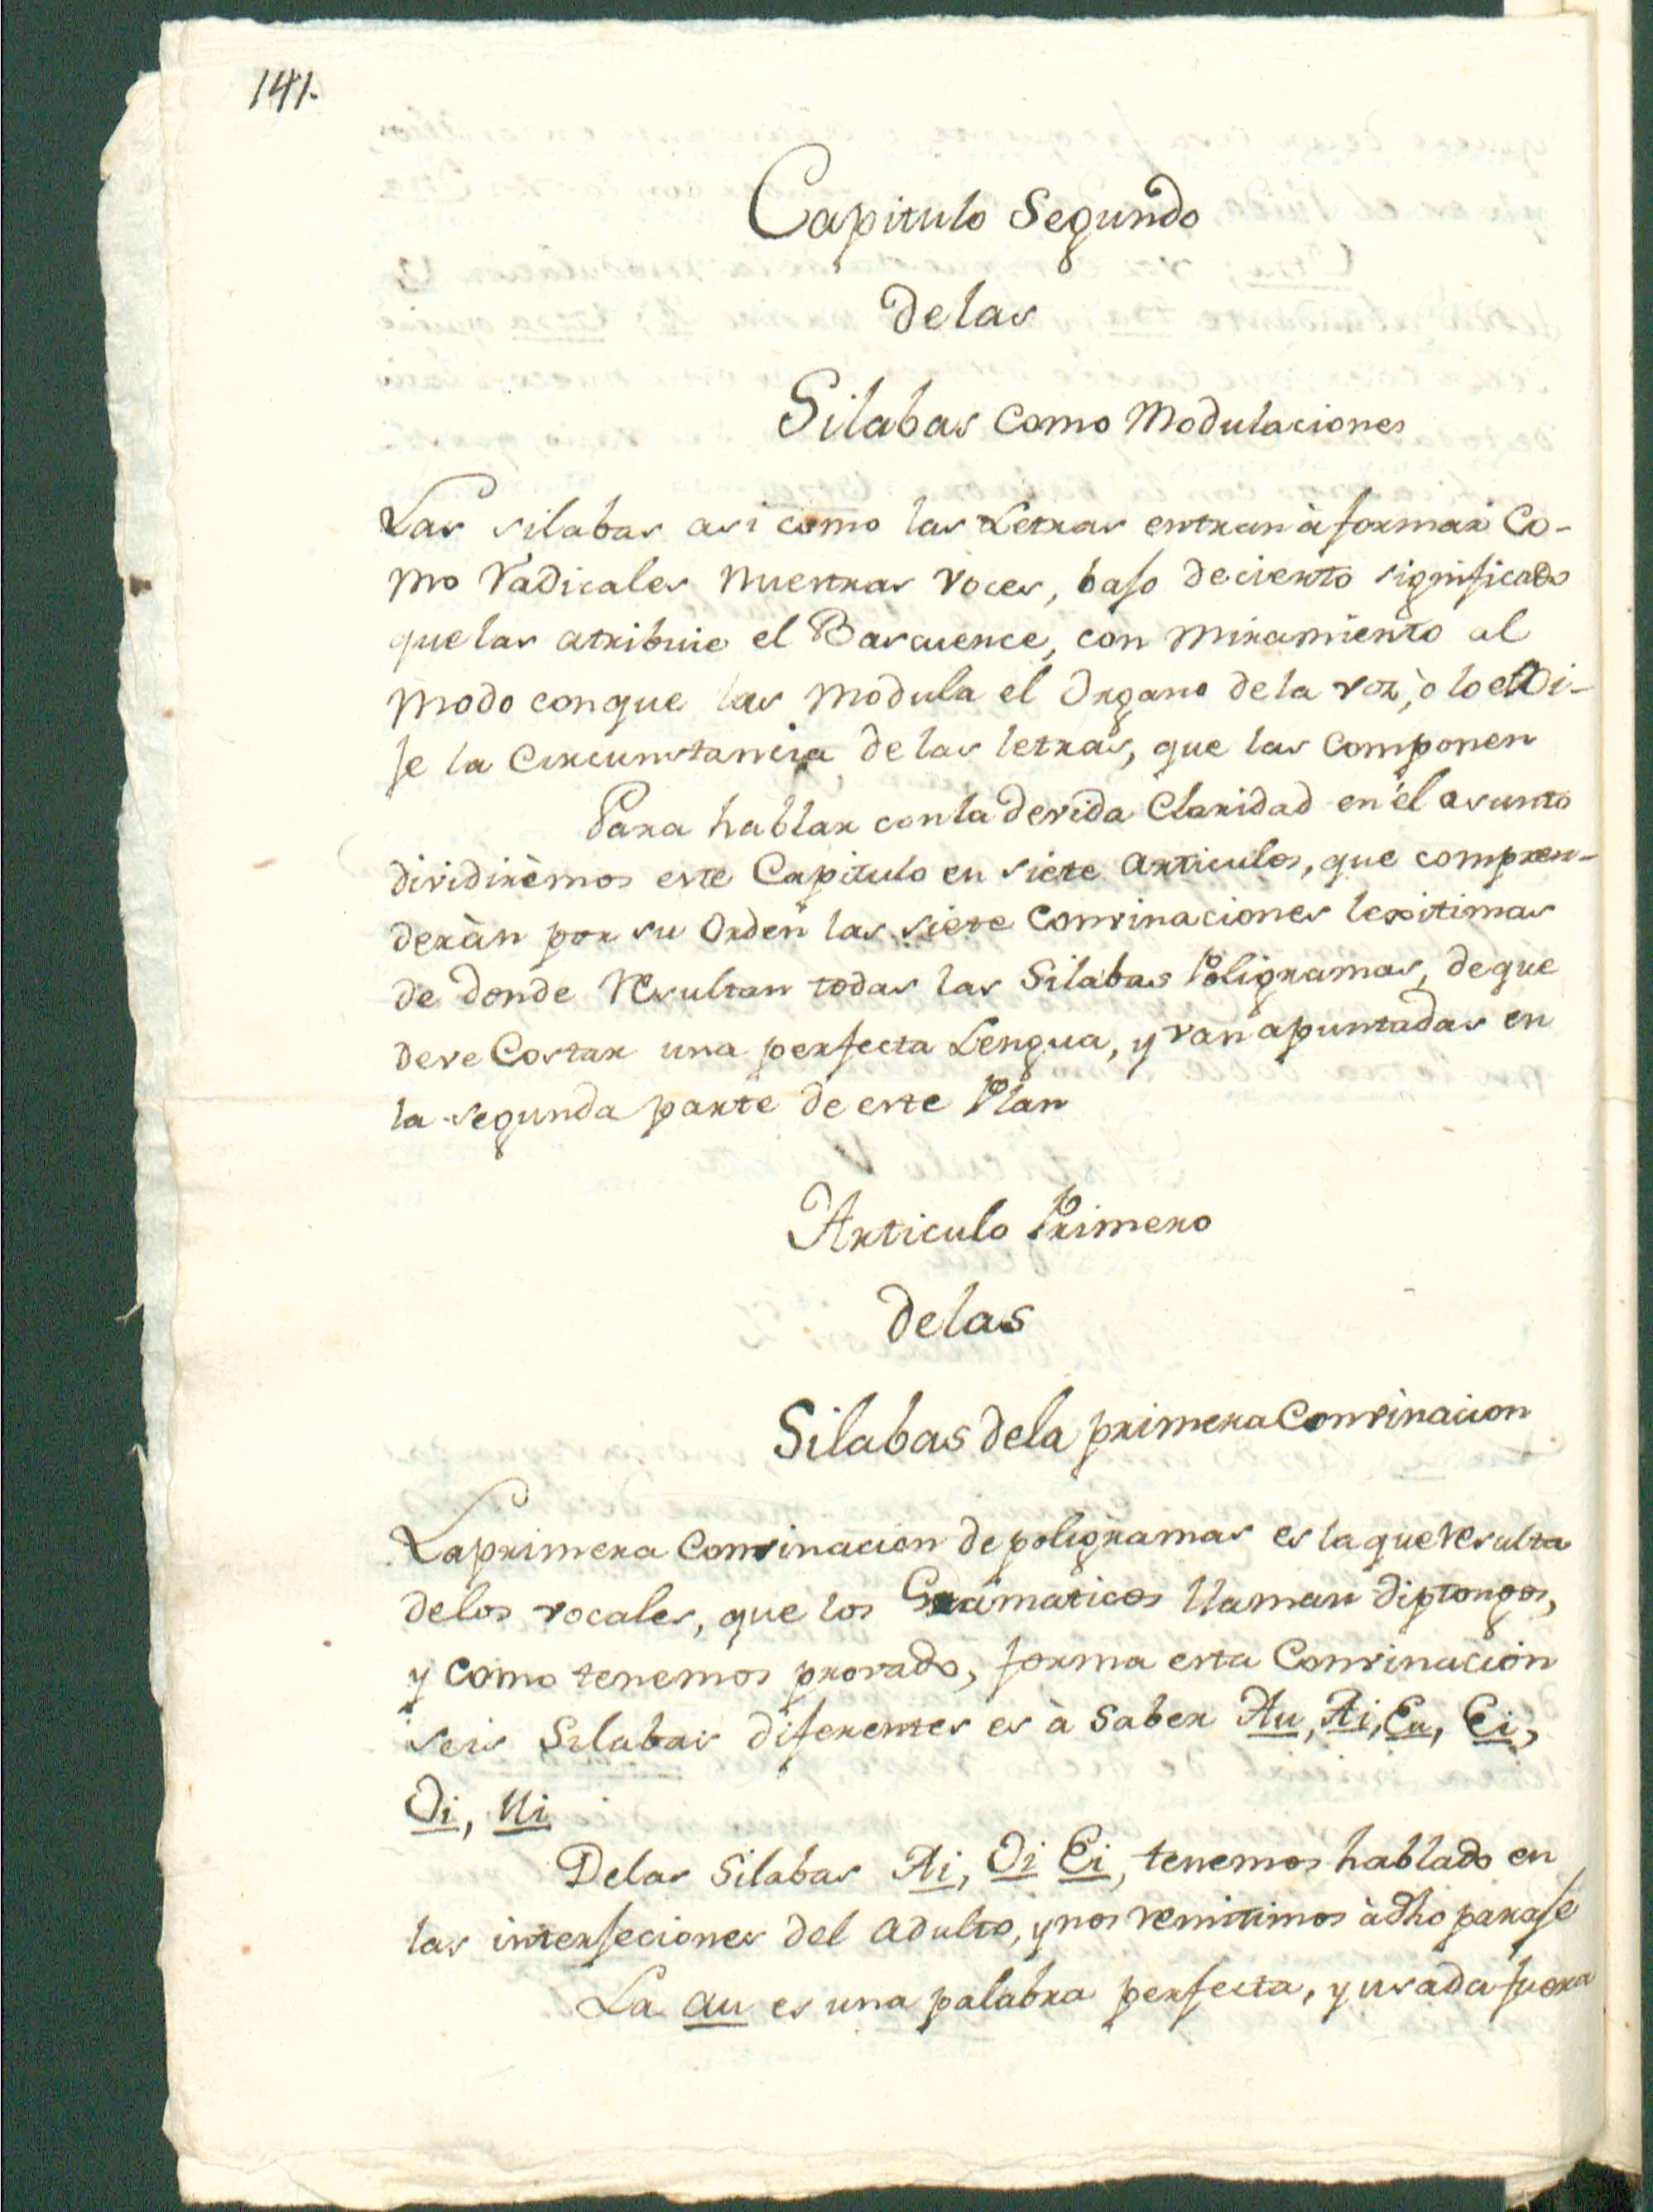 141.
Capitulo Segundo
delas
Silabas como Modulaciones
Las silabas asi como las Letras entran à formar Co-
mo Radicales nuestras voces, bajo de cierto significado
que las atribuie el Bascuence, con miramiento al
modo conque las modula el Organo de la voz, ò lo eli-
je la Circunstancia de las letras, que las componen
Para hablar con la devida Claridad en el asunto
dividirèmos este Capitulo en siete articulos, que compren-
deràn por su Orden las siete Convinaciones lexitimas
de donde resultan todas las Silabas Poligramas, de que
deve Costar una perfecta Lengua, y van apuntadas en
la segunda parte de este Plan
Articulo Primero
delas
Silabas dela primera Convinacion
La primera Convinacion de poligramas es la que resulta
delos vocales, que los Gramaticos llaman diptongos,
y como tenemos provado, forma esta Convinacion
seis Silabas diferentes es à saber Au, Ai, Eu, Ei,
Oi, Ui
Delas Silabas Ai, Oi Ei, tenemos hablado en
las interjeciones del adulto, y nos remitimos à dho paraje
La au es una palabra perfecta, y usada fuera